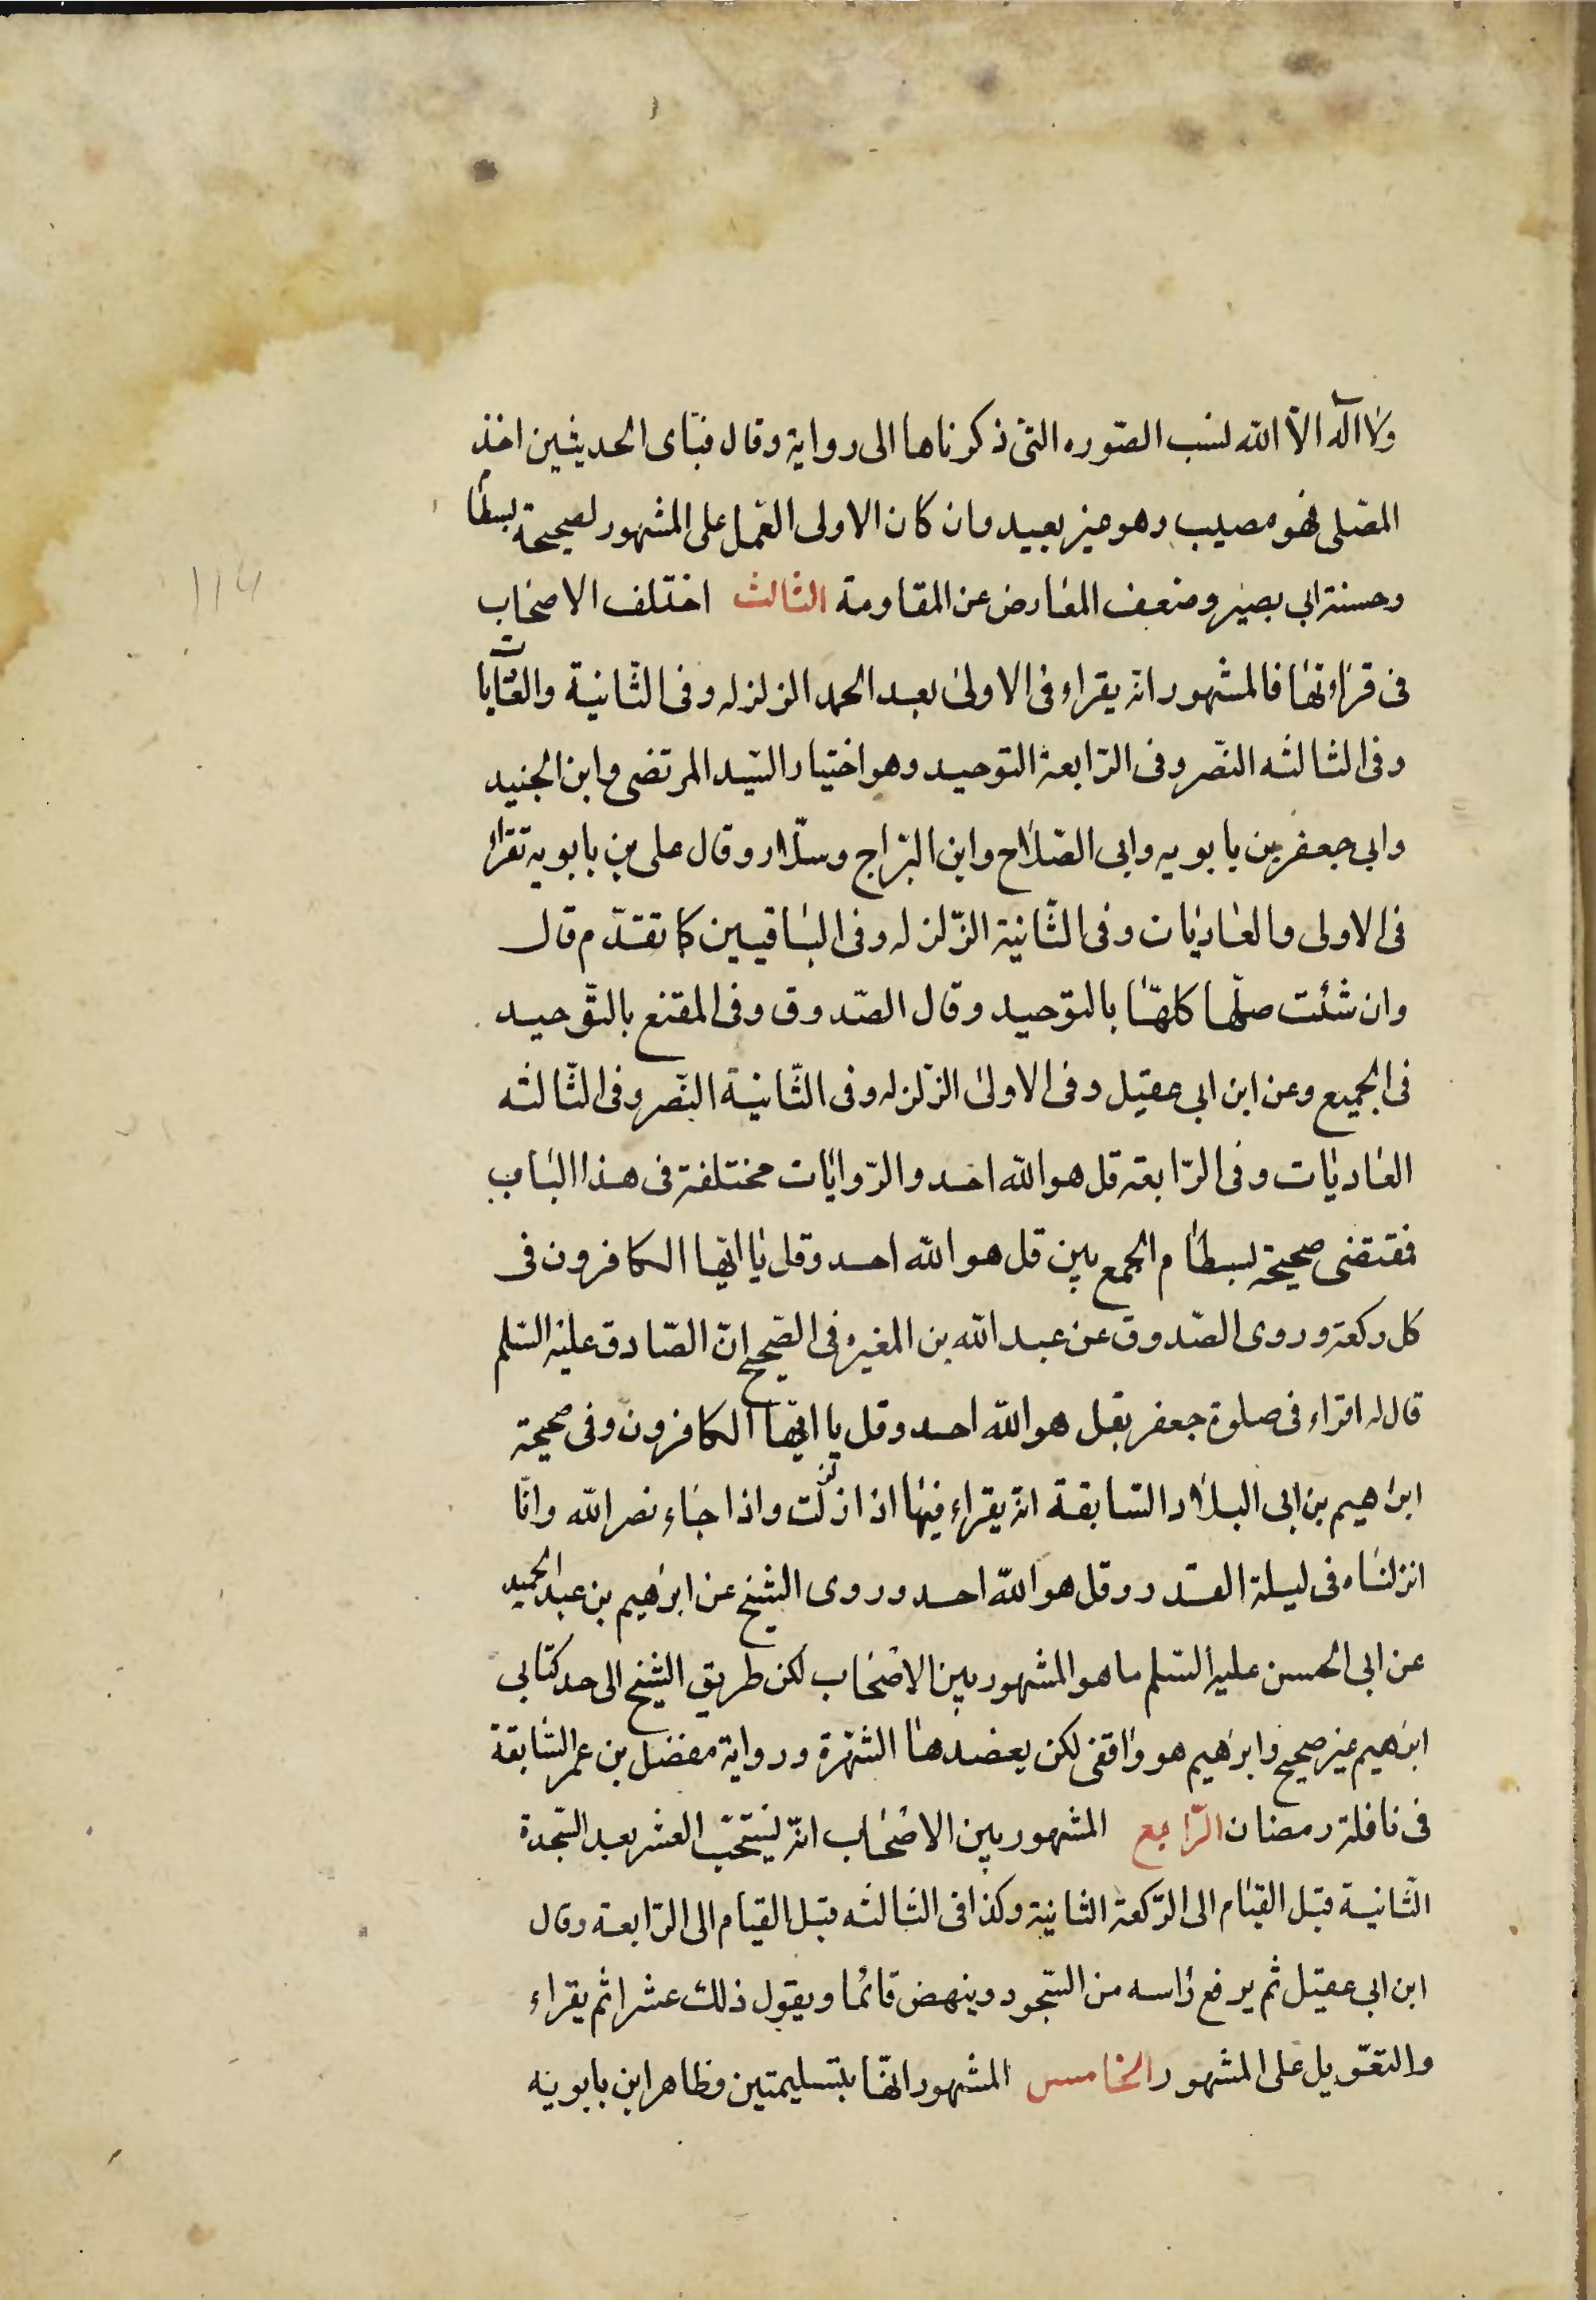 ولا اله الّا الله لنسب الصّوره التى ذكرناها الى رواية وقال فبأى الحديثين اخذ
المصّلى فهو مصيب وهو غير بعيد وان كان الاولى العّمل على المشهور لصحيحة بسطا
وحسنة ابى بصير وضعف المعارض عن المقاومة الثالث اختلف الاصحاب
فى قراءتها فالمشهور انه يقراء فى الاولى بعد الحمد الزلزله وفى الثّانية والعاديات
وفى الثالثه النّصر وفى الرّابعة التوحيد وهو اختيار السّيد المرتضى وابن الجنيد
وابى جعفر بن بابويه وابى الصّلاح وابن البرّاج وسلّار وقال على بن بابويه تقراء
فى الاولى والعاديات وفى الثّانية الزّلزله وفى الباقيين كما تقدّم قال
وان شئت صلّها كلهّا بالتوّحيد وقال الصّدوق وفى المقنع بالتوّحيد
فى الجميع وعن ابن ابى عقيل وفى الاولى الزّلزله وفى الثّانية النّصر وفى الثّالثه
العاديات وفى الرّابعة قل هو الله احد والرّوايات مختلفة فى هذا الباب
فمقتضى صحيحة بسطام الجمع بين قل هو الله احد وقل يا ايّها الكافرون فى
كل ركعة وروى الصّدوق عن عبد الله بن المغيره فى الصّحيح انّ الصّادق عليه السّلم
قال له اقراء فى صلوة جعفر بقل هو الله احد وقل يا ايّها الكافرون وفى صحيحة
ابراهيم بن ابى البلاد السّابقة انه يقراء فيها اذا زلزلت واذا جاء نصر الله وانّا
انزلناه فى ليلة القدر وقل هو الله احد وروى الشيّخ عن ابرهيم بن عبد الحميد
عن ابى الحسن عليه السّلم ما هو المشهور بين الاصحاب لكن طريق الشيخ الى احد كتابى
ابرهيم غير صحيح وابرهيم هو واقفى لكن يعضدها الشهّرة ورواية مفضل بن عمر السّابقة
فى نافلة رمضان الرّابع المشهور بين الاصحاب انّه يستحبّ العشر بعد السّجدة
الثّانية قبل القيام الى الرّكعة الثانية وكذا فى الثالثه قبل القيام الى الرّابعة وقال
ابن ابى عقيل ثم يرفع راسه من السّجود وينهض قائما ويقول ذلك عشرا ثم يقراء
والتعّويل على المشهور الخامس المشهور انهّا بتسليمتين وظاهر ابن بابويه